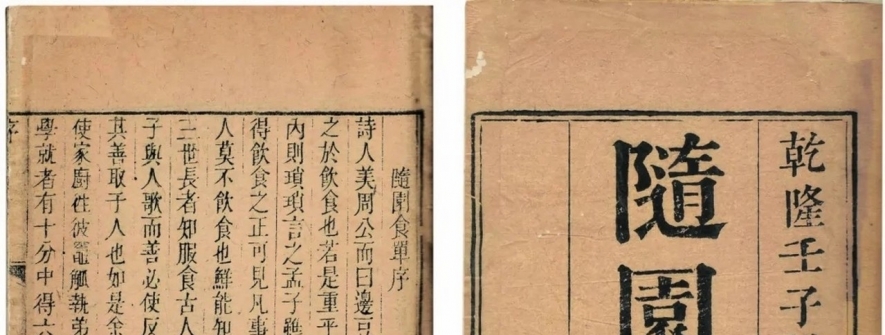 乾隆壬子
隨園
隨園食單序
詩人美周公而曰邊
之於飲食也若是重乎
內則瑣瑣言之孟子雖
得飲食之正可見凡事
人莫不飲食也鮮能知
三世長者知服食古人
子與人歌而善必使反
其善取于人也如是余
使家廚徃彼竈觚執弟
學就者有十分中得六
序